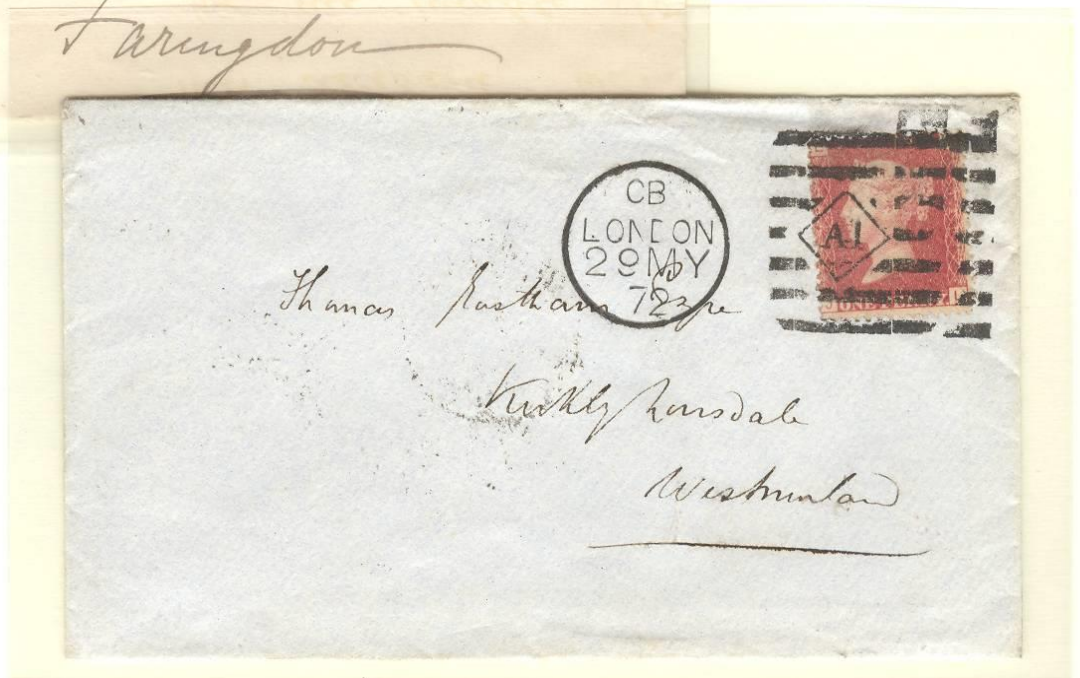 Faringdon
CB
LONDON
29 MY
72
A1
Thomas Eastham Esqre
Kirkby Lonsdale
Westmorland